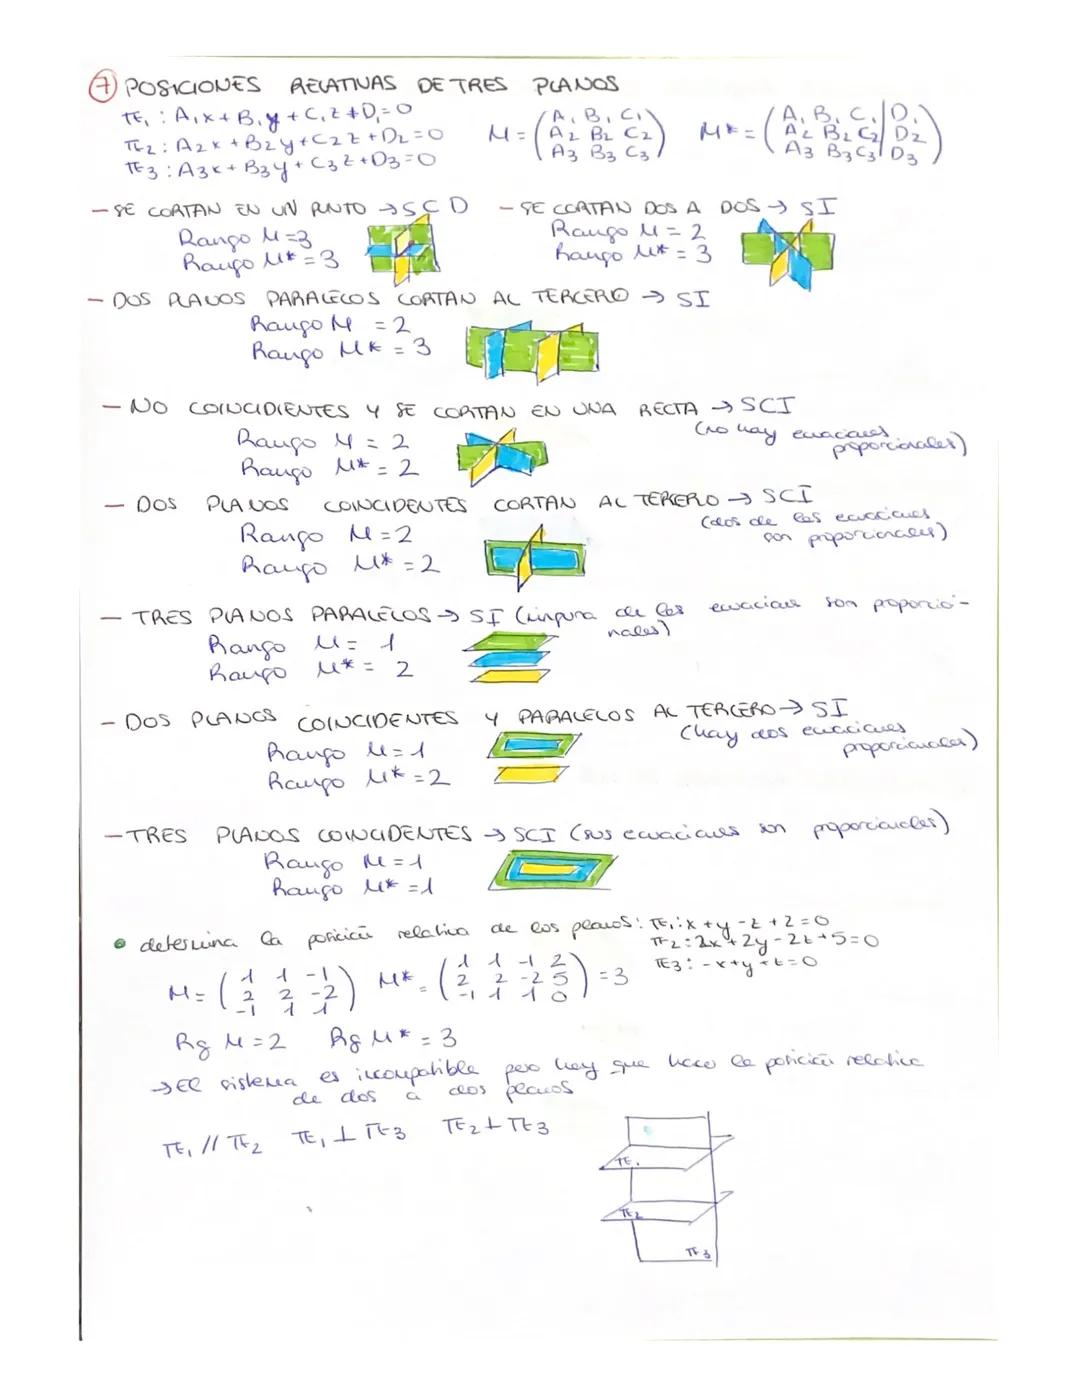 7 POSICIONES RELATIVAS DE TRES PLANOS
π₁ : A₁x + B₁y + C₁z + D₁ = 0
π₂ : A₂x + B₂y + C₂z + D₂ = 0
π₃ : A₃x + B₃y + C₃z + D₃ = 0
M = ( A₁ B₁ C₁
A₂ B₂ C₂
A₃ B₃ C₃ )
M* = ( A₁ B₁ C₁ | D₁
A₂ B₂ C₂ | D₂
A₃ B₃ C₃ | D₃ )
- SE CORTAN EN UN PUNTO → SCD
Rango M = 3
Rango M* = 3
- SE CORTAN DOS A DOS → SI
Rango M = 2
Rango M* = 3
- DOS PLANOS PARALELOS CORTAN AL TERCERO → SI
Rango M = 2
Rango M* = 3
- NO COINCIDENTES Y SE CORTAN EN UNA RECTA → SCI
(no hay ecuaciones
proporcionales)
Rango M = 2
Rango M* = 2
- DOS PLANOS COINCIDENTES CORTAN AL TERCERO → SCI
(dos de las ecuaciones
son proporcionales)
Rango M = 2
Rango M* = 2
- TRES PLANOS PARALELOS → SI (ninguna de las ecuaciones son proporcio-
nales)
Rango M = 1
Rango M* = 2
- DOS PLANOS COINCIDENTES Y PARALELOS AL TERCERO → SI
(hay dos ecuaciones
proporcionales)
Rango M = 1
Rango M* = 2
- TRES PLANOS COINCIDENTES → SCI (sus ecuaciones son proporcionales)
Rango M = 1
Rango M* = 1
• determina la posición relativa de los planos: π₁: x + y - z + 2 = 0
π₂: 2x + 2y - 2z + 5 = 0
π₃: -x + y + z = 0
M = ( 1 1 -1
2 2 -2
-1 1 1 )
M* = ( 1 1 -1 2
2 2 -2 5
-1 1 1 0 ) = 3
Rg M = 2 Rg M* = 3
→ El sistema es incompatible pero hay que hacer la posición relativa
de dos a dos planos
π₁ // π₂ π₁ ⊥ π₃ π₂ ⊥ π₃
π₁
π₂
π₃